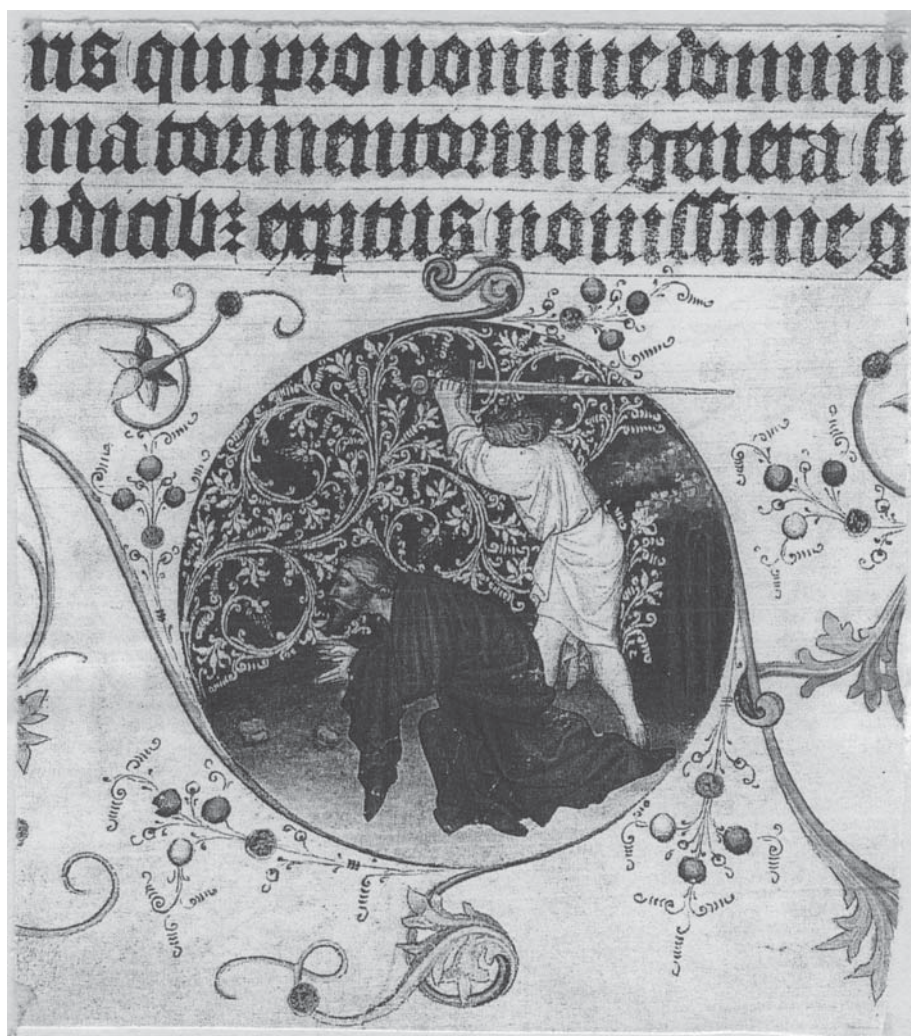 ris qui pro nomine domini
ma tormentorum genera su
udicibz exptus nouissime g